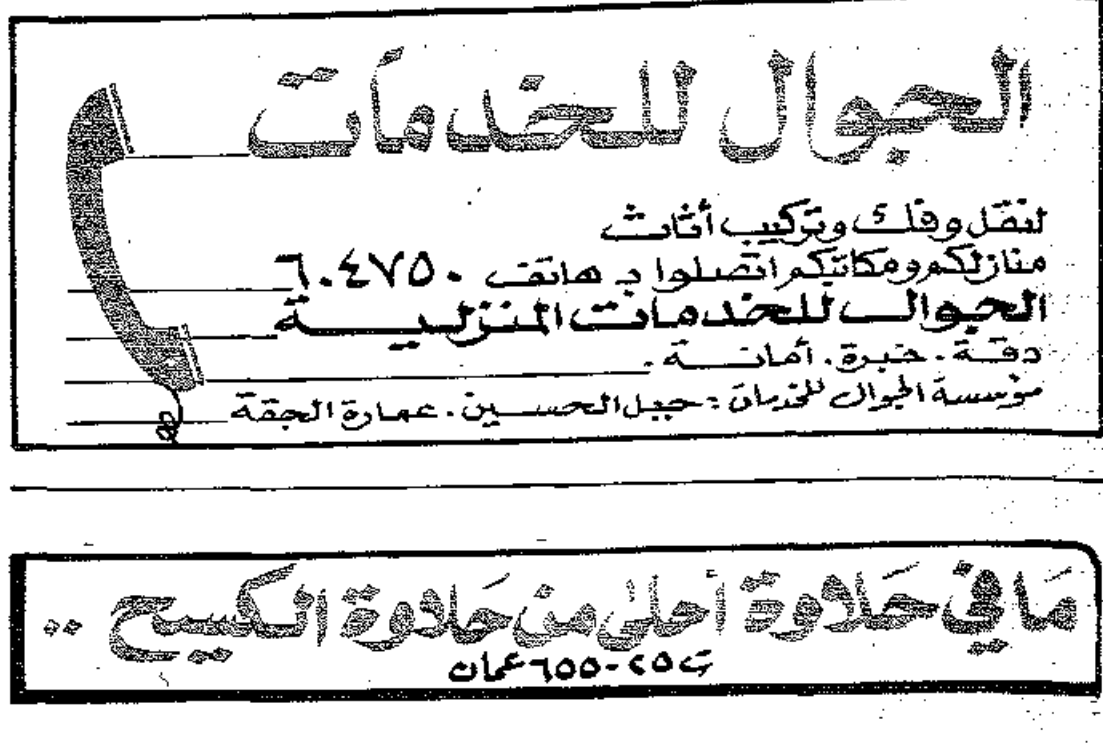 الجوال للخدمات
لنقل وفك وتركيب أثاث
منازلكم ومكاتبكم اتصلوا بـ هاتف ٦٠٤٧٥٠
الجوال للخدمات المنزلية
دقة . خبرة . أمانة .
مؤسسة الجوال للخدمات : جبل الحسين . عمارة الحجة
مَا في حَلاوة أحلى من حَلاوة الكسيح ..
ت ٦٥٥٠٢٥ عمان